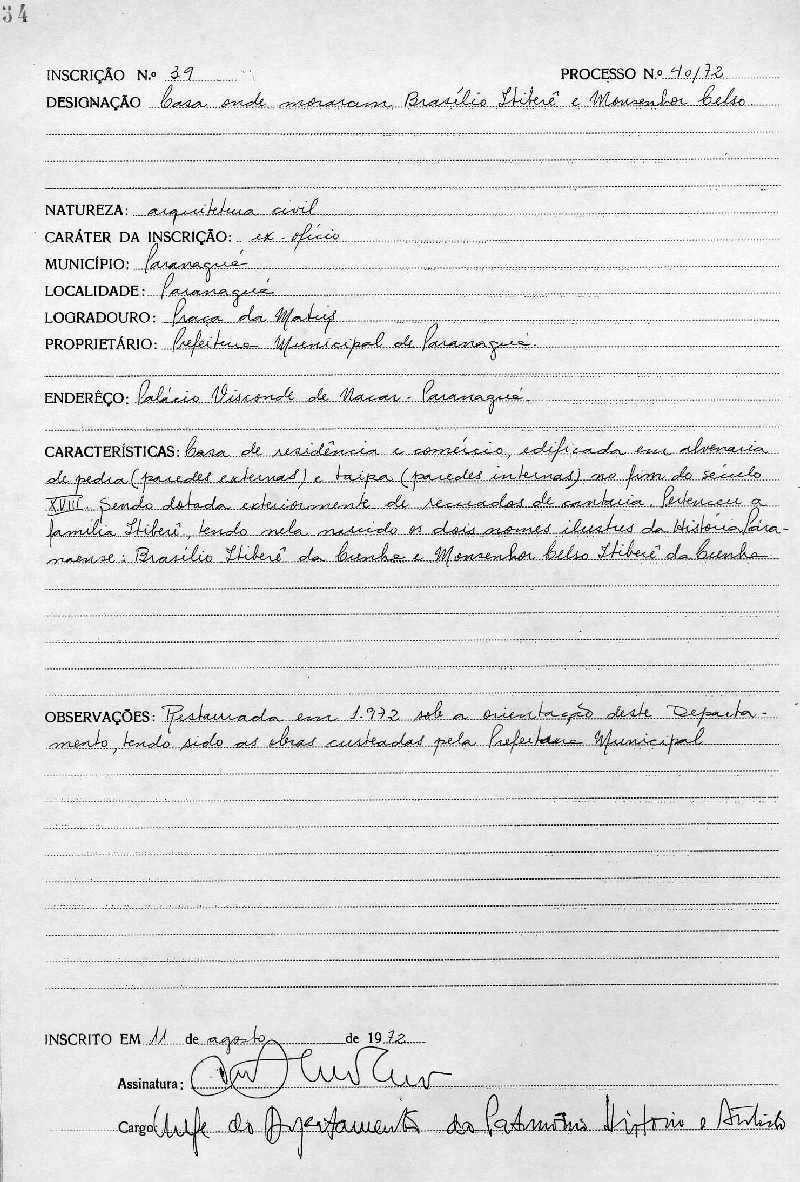 34
INSCRIÇÃO N.º 39 PROCESSO N.º 40/72
DESIGNAÇÃO Casa onde moraram Brasílio Itiberê e Monsenhor Celso
NATUREZA: arquitetura civil
CARÁTER DA INSCRIÇÃO: ex-ofício
MUNICÍPIO: Paranaguá
LOCALIDADE: Paranaguá
LOGRADOURO: Praça da Matriz
PROPRIETÁRIO: Prefeitura Municipal de Paranaguá.
ENDERÊÇO: Palácio Visconde de Nacar - Paranaguá.
CARACTERÍSTICAS: Casa de residência e comércio, edificada em alvenaria
de pedra (paredes externas) e taipa (paredes internas) no fim do século
XVIII. Sendo dotada exteriormente de de cantaria. Pertenceu a
família Itiberê, tendo nela nascido os dois nomes ilustres da História Para-
naense: Brasílio Itiberê da Cunha e Monsenhor Celso Itiberê da Cunha
OBSERVAÇÕES: Restaurada em 1.972 sob a orientação deste Departa-
mento, tendo sido as obras custeadas pela Prefeitura Municipal
INSCRITO EM 11 de agosto de 1972
Assinatura:
Cargo: Chefe do Departamento do Patrimônio Histórico e Artístico